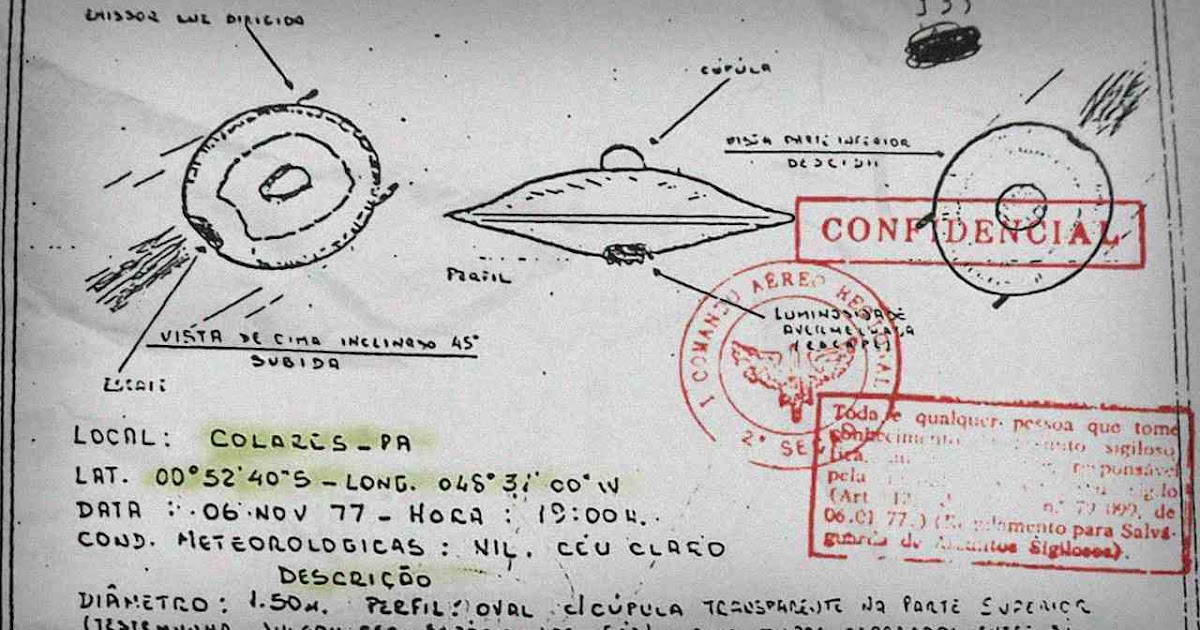 EMISSOR LUZ DIRIGIDA
CÚPULA
VISTA PARTE INFERIOR
CONFIDENCIAL
PERFIL
I COMANDO AÉREO REGIONAL
2ª SEÇ
LUMINOSIDADE
AVERMELHADA
(ESCAPE)
VISTA DE CIMA INCLINADO 45°
SUBIDA
ESCAPE
Toda e qualquer pessoa que tome
conhecimento sigiloso
fica, responsável
pela
(Art 12, de
06.01 77.) (Regulamento para Salva-
guarda de Assuntos Sigilosos).
LOCAL: COLARES - PA
LAT. 00°52'40"S - LONG. 048° 00" W
DATA: 06 NOV 77 - HORA: 19:00H.
COND. METEOROLOGICAS: NIL. CÉU CLARO
DESCRIÇÃO
DIÂMETRO: 1.50M. PERFIL: OVAL C/CÚPULA TRANSPARENTE NA PARTE SUPERIOR
(TESTEMUNHA